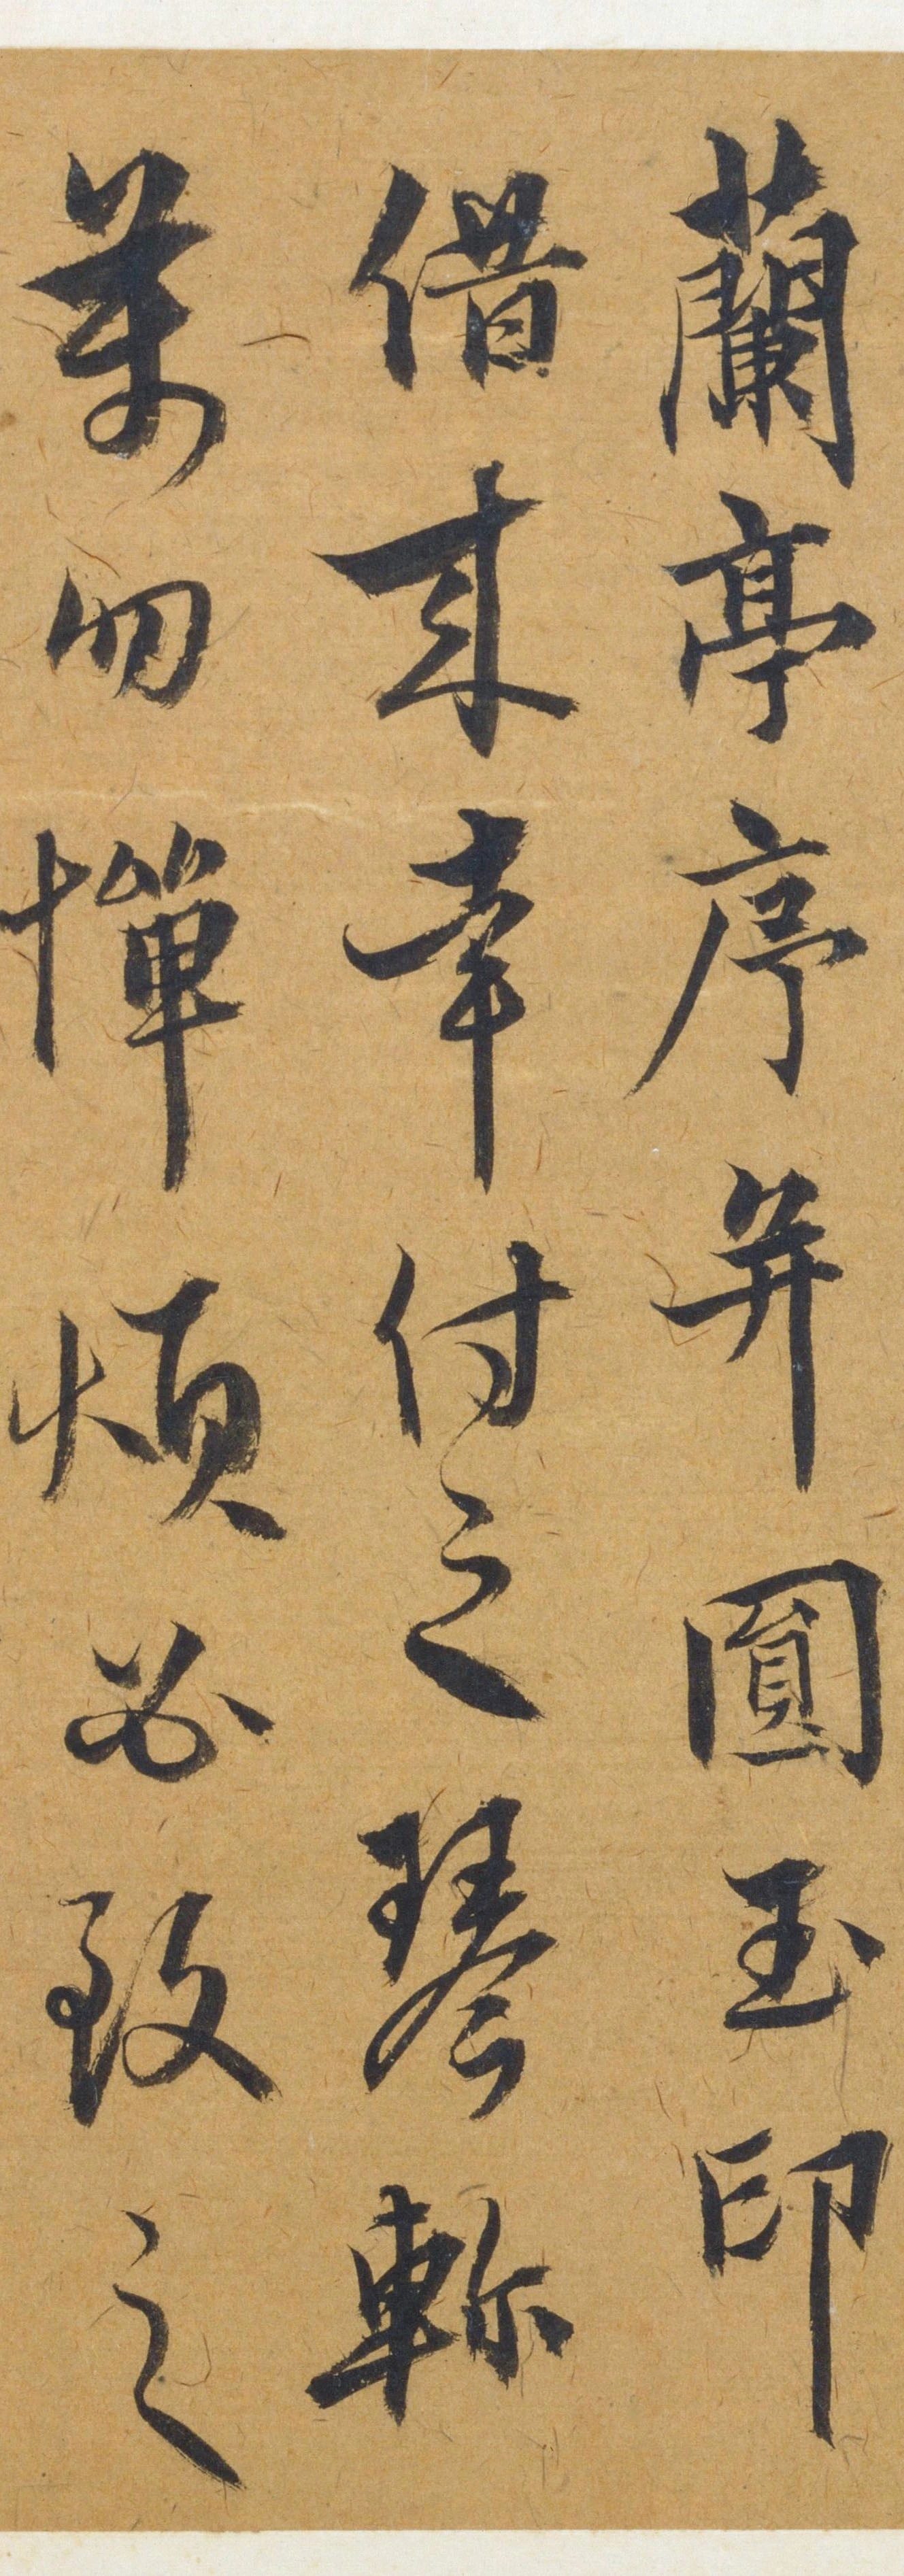 蘭亭序并圓玉印
借来幸付之琴軫
萬勿憚煩必致之